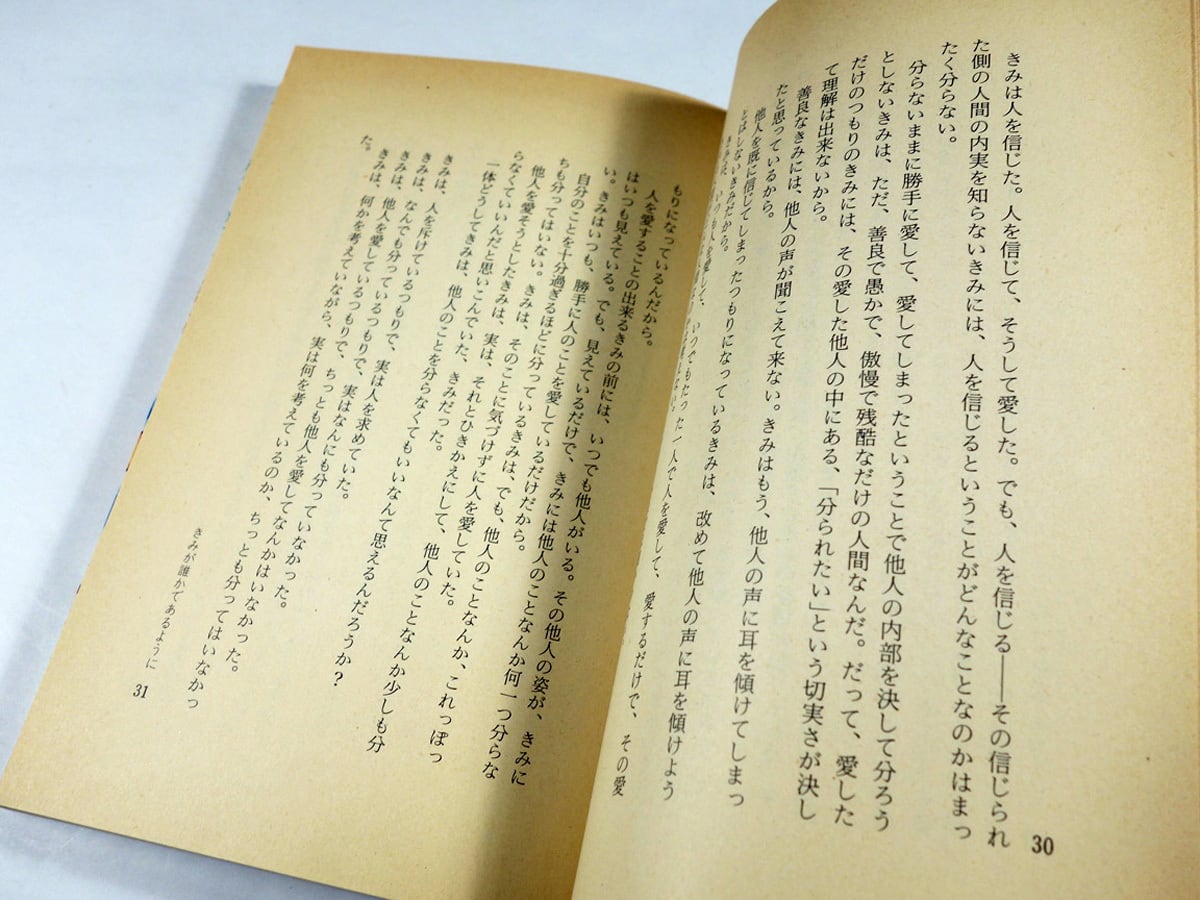 きみは人を信じた。人を信じて、そうして愛した。でも、人を信じる——その信じられ
た側の人間の内実を知らないきみには、人を信じるということがどんなことなのかはまっ
たく分らない。
分らないままに勝手に愛して、愛してしまったということで他人の内部を決して分ろう
としないきみは、ただ、善良で愚かで、傲慢で残酷なだけの人間なんだ。だって、愛した
だけのつもりのきみには、その愛した他人の中にある、「分られたい」という切実さが決し
て理解は出来ないから。
善良なきみには、他人の声が聞こえて来ない。きみはもう、他人の声に耳を傾けてしまっ
たと思っているから。
他人を既に信じてしまったつもりになっているきみは、改めて他人の声に耳を傾けよう
とはしないきみだから。
きみは、いつも人を愛して、いつでもたった一人で人を愛して、愛するだけで、その愛
30
もりになっているんだから。
人を愛することの出来るきみの前には、いつでも他人がいる。その他人の姿が、きみに
はいつも見えている。でも、見えているだけで、きみには他人のことなんか何一つ分らな
い。きみはいつも、勝手に人のことを愛しているだけだから。
自分のことを十分過ぎるほどに分っているきみは、でも、他人のことなんか、これっぽっ
ちも分ってはいない。きみは、そのことに気づけずに人を愛していた。
他人を愛そうとしたきみは、実は、それとひきかえにして、他人のことなんか少しも分
らなくていいんだと思いこんでいた、きみだった。
一体どうしてきみは、他人のことを分らなくてもいいなんて思えるんだろうか?
きみは、人を斥けているつもりで、実は人を求めていた。
きみは、なんでも分っているつもりで、実はなんにも分っていなかった。
きみは、他人を愛しているつもりで、ちっとも他人を愛してなんかはいなかった。
きみは、何かを考えていながら、実は何を考えているのか、ちっとも分ってはいなかっ
た。
きみが誰かであるように
31